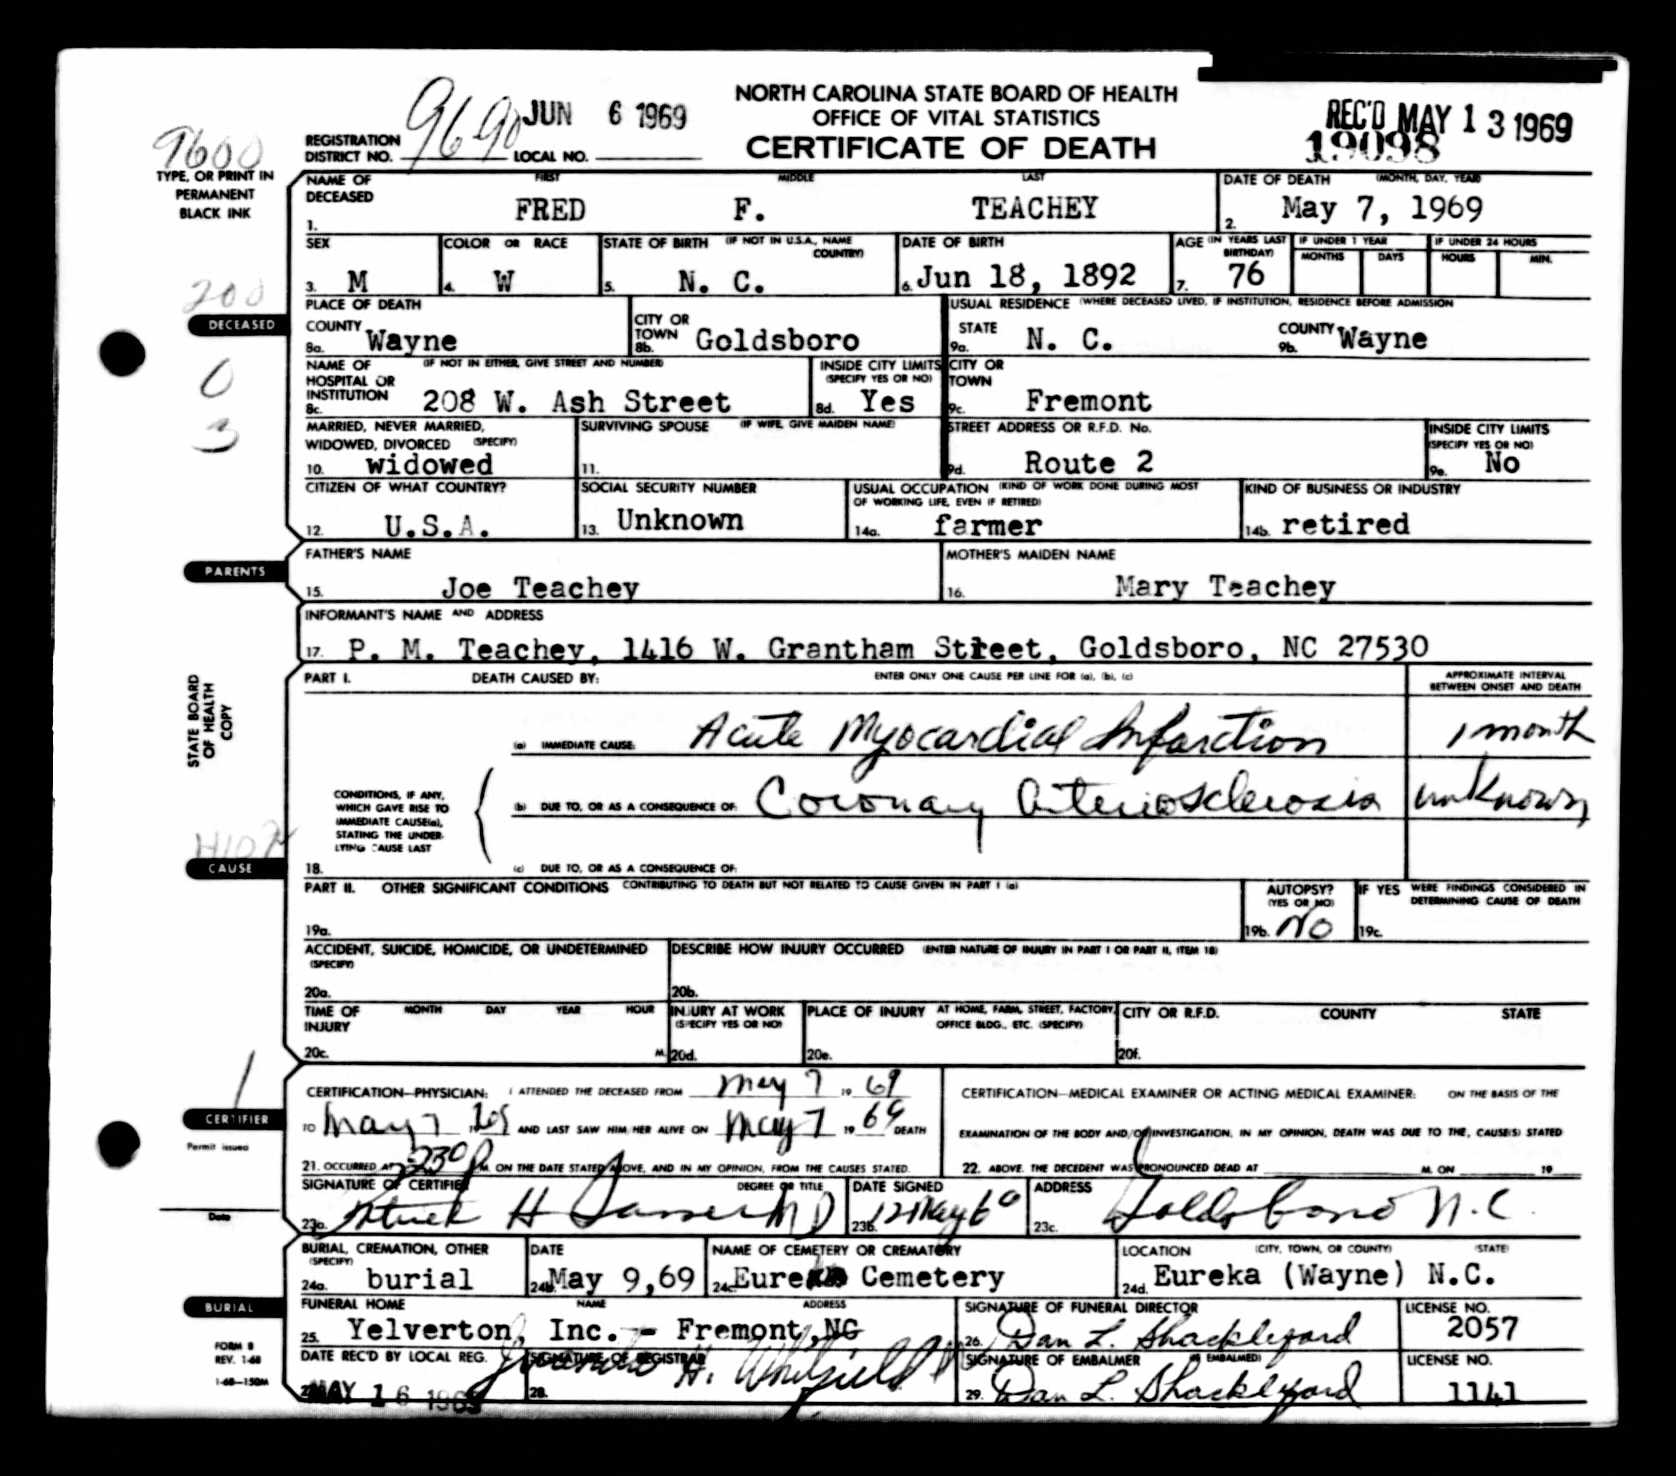 NORTH CAROLINA STATE BOARD OF HEALTH
OFFICE OF VITAL STATISTICS
CERTIFICATE OF DEATH
REGISTRATION DISTRICT NO. 9690 JUN 6 1969 LOCAL NO.
REC'D MAY 13 1969
19098
9600
TYPE, OR PRINT IN
PERMANENT
BLACK INK
NAME OF DECEASED FIRST MIDDLE LAST DATE OF DEATH (MONTH, DAY, YEAR)
1. FRED F. TEACHEY 2. May 7, 1969
SEX COLOR OR RACE STATE OF BIRTH (IF NOT IN U.S.A., NAME COUNTRY) DATE OF BIRTH AGE (IN YEARS LAST BIRTHDAY) IF UNDER 1 YEAR MONTHS DAYS IF UNDER 24 HOURS HOURS MIN.
3. M 4. W 5. N. C. 6. Jun 18, 1892 7. 76
200
DECEASED
0
3
PLACE OF DEATH USUAL RESIDENCE (WHERE DECEASED LIVED, IF INSTITUTION, RESIDENCE BEFORE ADMISSION
COUNTY 8a. Wayne CITY OR TOWN 8b. Goldsboro STATE 9a. N. C. COUNTY 9b. Wayne
NAME OF HOSPITAL OR INSTITUTION (IF NOT IN EITHER, GIVE STREET AND NUMBER) INSIDE CITY LIMITS (SPECIFY YES OR NO) CITY OR TOWN
8c. 208 W. Ash Street 8d. Yes 9c. Fremont
MARRIED, NEVER MARRIED, WIDOWED, DIVORCED (SPECIFY) SURVIVING SPOUSE (IF WIFE, GIVE MAIDEN NAME) STREET ADDRESS OR R.F.D. No. INSIDE CITY LIMITS (SPECIFY YES OR NO)
10. widowed 11. 9d. Route 2 9e. No
CITIZEN OF WHAT COUNTRY? SOCIAL SECURITY NUMBER USUAL OCCUPATION (KIND OF WORK DONE DURING MOST OF WORKING LIFE, EVEN IF RETIRED) KIND OF BUSINESS OR INDUSTRY
12. U.S.A. 13. Unknown 14a. farmer 14b. retired
PARENTS
FATHER'S NAME MOTHER'S MAIDEN NAME
15. Joe Teachey 16. Mary Teachey
INFORMANT'S NAME AND ADDRESS
17. P. M. Teachey, 1416 W. Grantham Street, Goldsboro, NC 27530
STATE BOARD
OF HEALTH
COPY
PART I. DEATH CAUSED BY: ENTER ONLY ONE CAUSE PER LINE FOR (a), (b), (c) APPROXIMATE INTERVAL BETWEEN ONSET AND DEATH
(a) IMMEDIATE CAUSE: Acute Myocardial Infarction 1 month
CONDITIONS, IF ANY, WHICH GAVE RISE TO IMMEDIATE CAUSE(a), STATING THE UNDERLYING CAUSE LAST
(b) DUE TO, OR AS A CONSEQUENCE OF: Coronary Arteriosclerosis unknown
CAUSE
18. (c) DUE TO, OR AS A CONSEQUENCE OF:
PART II. OTHER SIGNIFICANT CONDITIONS CONTRIBUTING TO DEATH BUT NOT RELATED TO CAUSE GIVEN IN PART I (a) AUTOPSY? (YES OR NO) IF YES WERE FINDINGS CONSIDERED IN DETERMINING CAUSE OF DEATH
19a. 19b. No 19c.
ACCIDENT, SUICIDE, HOMICIDE, OR UNDETERMINED (SPECIFY) DESCRIBE HOW INJURY OCCURRED (ENTER NATURE OF INJURY IN PART I OR PART II, ITEM 18)
20a. 20b.
TIME OF INJURY MONTH DAY YEAR HOUR INJURY AT WORK (SPECIFY YES OR NO) PLACE OF INJURY AT HOME, FARM, STREET, FACTORY, OFFICE BLDG., ETC. (SPECIFY) CITY OR R.F.D. COUNTY STATE
20c. M. 20d. 20e. 20f.
1
CERTIFIER
Permit issued
Date
CERTIFICATION—PHYSICIAN: I ATTENDED THE DECEASED FROM May 7 19 69
TO May 7 1969 AND LAST SAW HIM/HER ALIVE ON May 7 19 69 DEATH
21. OCCURRED AT 230 P M. ON THE DATE STATED ABOVE, AND IN MY OPINION, FROM THE CAUSES STATED.
CERTIFICATION—MEDICAL EXAMINER OR ACTING MEDICAL EXAMINER: ON THE BASIS OF THE
EXAMINATION OF THE BODY AND/OR INVESTIGATION, IN MY OPINION, DEATH WAS DUE TO THE, CAUSE(S) STATED
22. ABOVE. THE DECEDENT WAS PRONOUNCED DEAD AT M. ON 19
SIGNATURE OF CERTIFIER DEGREE OR TITLE DATE SIGNED ADDRESS
23a. H MD 23b. 12 May 69 23c. Goldsboro N.C.
BURIAL, CREMATION, OTHER (SPECIFY) DATE NAME OF CEMETERY OR CREMATORY LOCATION (CITY, TOWN, OR COUNTY) (STATE)
24a. burial 24b. May 9,69 24c. Eureka Cemetery 24d. Eureka (Wayne) N.C.
BURIAL
FUNERAL HOME NAME ADDRESS SIGNATURE OF FUNERAL DIRECTOR LICENSE NO.
25. Yelverton, Inc. - Fremont, NC 26. Dan L. Shackleford 2057
FORM 8
REV. 1-68
1-68—150M
DATE REC'D BY LOCAL REG. SIGNATURE OF REGISTRAR SIGNATURE OF EMBALMER (IF EMBALMED) LICENSE NO.
MAY 16 1969 28. H. Whitfield 29. Dan L. Shackleford 1141